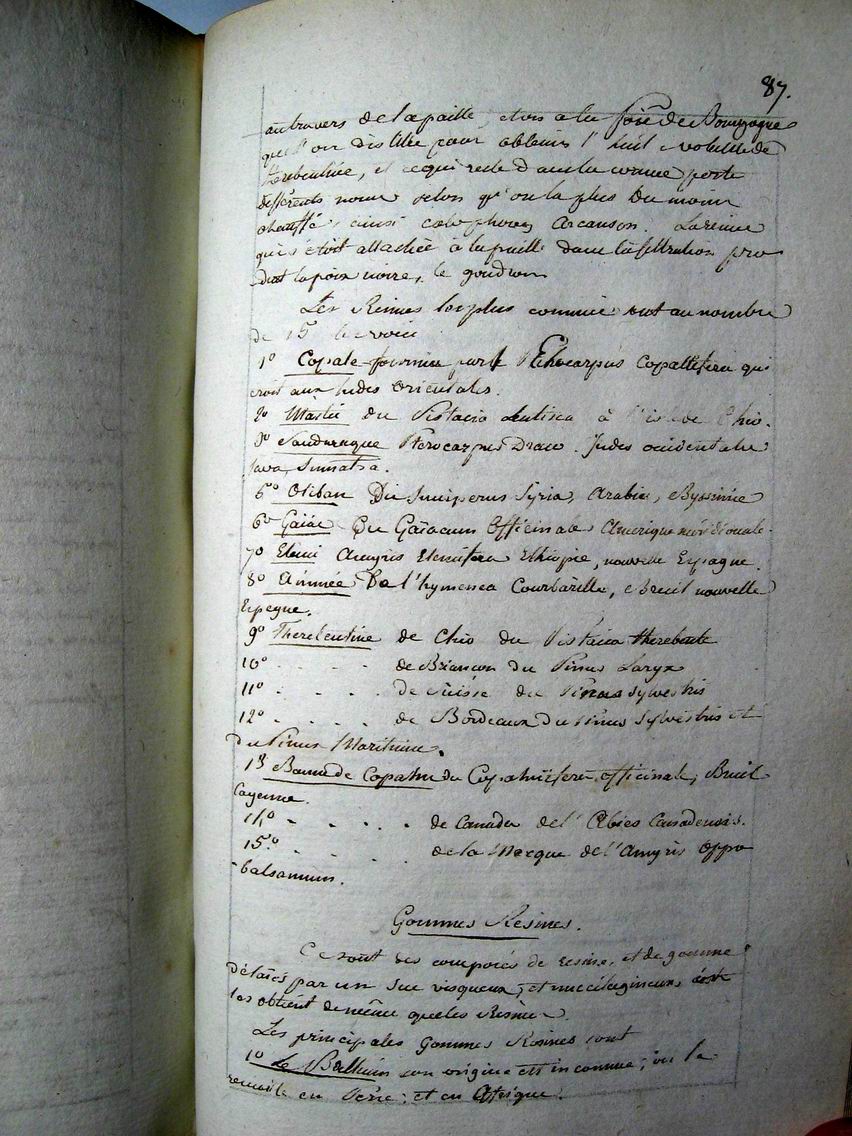 87.
au travers de la paille, et on a la poix de Bourgogne
que l'on distille pour obtenir l'huil volatile de
terebentine, et ce qui reste dans la cornue porte
differents noms selon qu'on la plus ou moins
chauffé; ainsi colophone, arcanson. La resine
qui s'étoit attachée à la paille dans la filtration pro
duit la poix noire, le goudron
Les Resines les plus connues sont au nombre
de 15 les voici
1º Copale fournie par le Elaeocarpus Copallifera qui
croit aux Indes Orientales.
2º Mastic du Pistacia Lentisca à l'isle de Chio.
3º Sandaraque Pterocarpus Draco. Indes occidentales
Java, Sumatra.
5º Oliban Du Juniperus Syria, Arabie, Abyssinie
6º Gaïac Du Gaïacum Officinale Amerique méridionale.
7º Elemi Amyris Elemifera Ethiopie, nouvelle Espagne.
8º Animée De l'hymenea Courbarille, Bresil nouvelle
Espagne.
9º Therebentine de Chio du Pistacia
10º . . . . de Briancon du Pinus Laryx
11º . . . . de Suisse du Pinus Sylvestris
12º . . . . de Bordeaux du Pinus Sylvestris et
du Pinus Maritima.
13 Baume de Copahu du Copahifera officinale, Bresil
Cayenne.
14º . . . . de Canada de l'Abies Canadensis.
15º . . . . de la Mecque de l'Amyris Oppo
-balsamum.
Gommes Resines.
Ce sont des composés de resine, et de gomme
délaiés par un suc visqueux, et mucilagineux
les obtient de même que les Resines.
Les principales Gommes Resines sont
1º Le Bdellium son origine est inconnue; on la
recueille en Perse; et en Afrique.